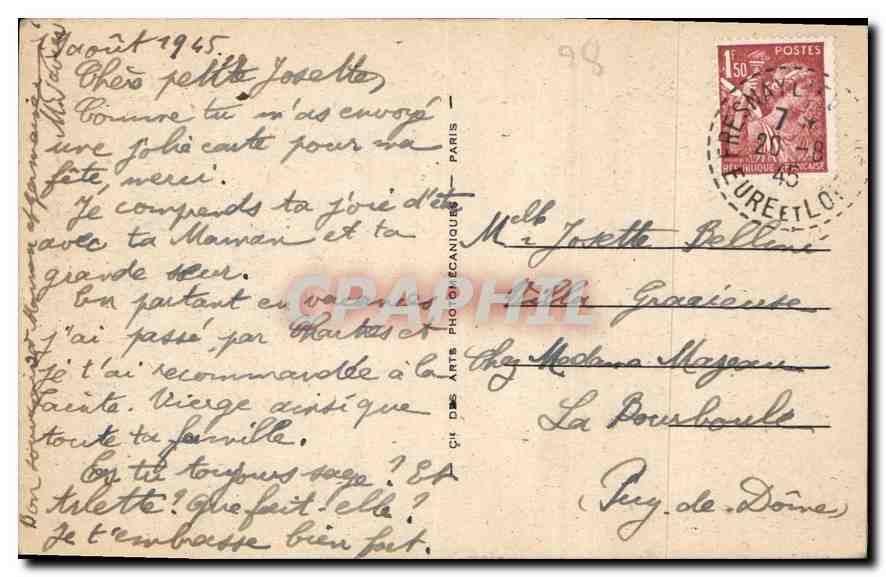 août 1945.
Chère petite Josette,
Comme tu m'as envoyé
une jolie carte pour ma
fête, merci.
Je comprends ta joie d'être
avec ta Maman et ta
grande sœur.
En partant en vacances
j'ai passé par Chartres et
je t'ai recommandée à la
Sainte. Vierge ainsi que
toute ta famille.
Es tu toujours sage? Et
Arlette? que fait-elle?
Je t'embrasse bien fort.
Bon souvenir à Maman et Germaine
Cie DES ARTS PHOTOMÉCANIQUES — PARIS —
98
POSTES
1F50
RÉPUBLIQUE FRANÇAISE
FRESNAY
7
20 -8
45
EURE ET LOIR
Melle Josette
Villa Gracieuse
Chez Madame Mazeau
La Bourboule
Puy-de-Dôme
CPAPHIL